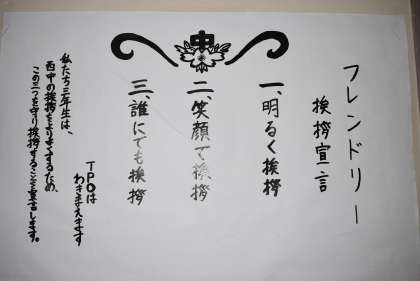 フレンドリー
挨拶宣言
中
一、明るく挨拶
二、笑顔で挨拶
三、誰にでも挨拶
TPOは
わきまえます
私たち三年生は、
西中の挨拶をよりよくするため、
この三つを守り挨拶することを宣言します。